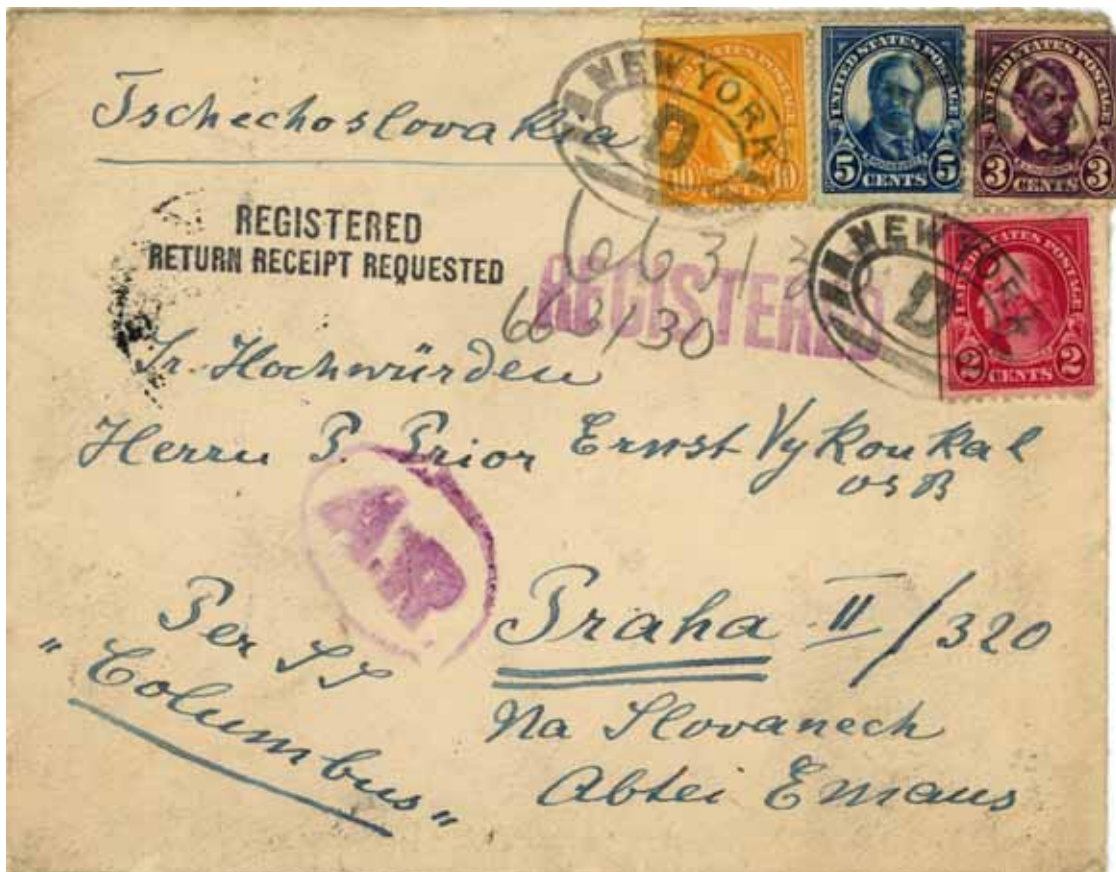 Tschechoslovakia
NEW YORK
D
UNITED STATES POSTAGE
10 10
UNITED STATES POSTAGE
5 CENTS 5
UNITED STATES POSTAGE
3 CENTS 3
REGISTERED
RETURN RECEIPT REQUESTED
REGISTERED
663130
NEW YORK
D
UNITED STATES POSTAGE
2 CENTS 2
Sr. Hochwürden
Herrn P. Prior Ernst Vykoukal
OSB
AR
Per SS
"Columbus"
Praha II/320
Na Slovanech
Abtei Emaus